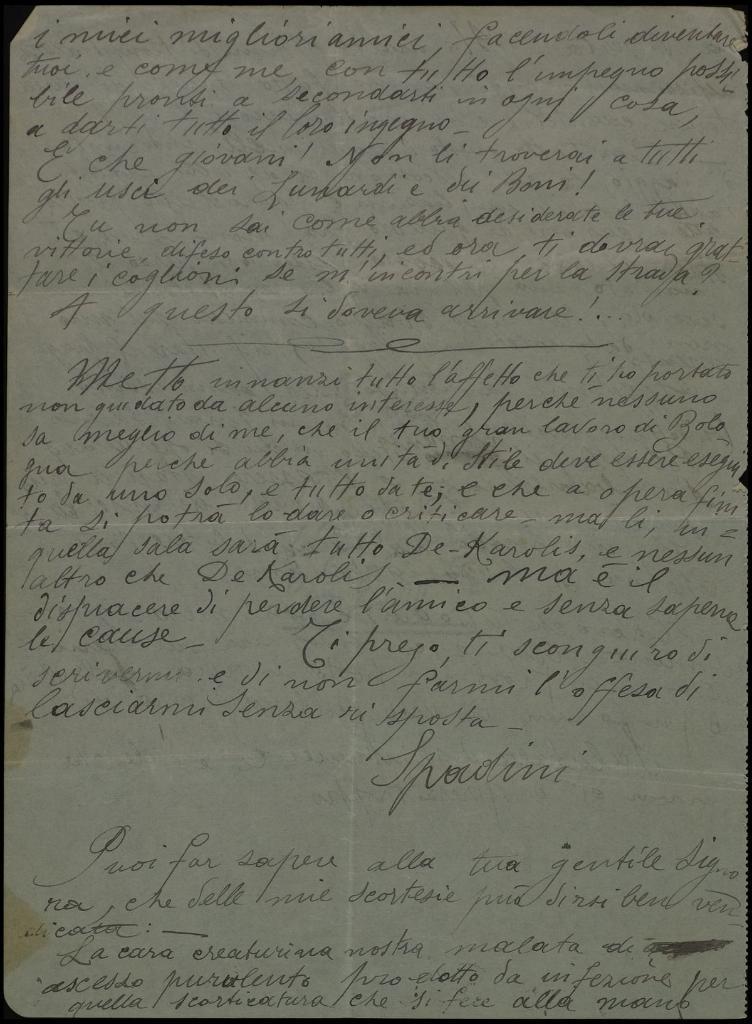 i miei migliori amici, facendoli diventare
tuoi e come me, con tutto l'impegno possi-
bile pronti a secondarti in ogni cosa,
a darti tutto il loro ingegno_
E che giovani! Non li troverai a tutti
gli usci dei Lunardi e dei Boni!
Tu non sai come abbia desiderate le tue
vittorie, difeso contro tutti, ed ora ti dovrai grat-
tare i coglioni se m'incontri per la strada?
A questo si doveva arrivare!...
Metto innanzi tutto l'affetto che ti ho portato
non guidato da alcuno interesse, perché nessuno
sa meglio di me, che il tuo gran lavoro di Bolo
gna perché abbia unità di stile deve essere esegui
to da uno solo, e tutto da te; e che a opera fini
ta si potrà lodare o criticare_ ma lì, in=
quella sala sarà tutto De-Karolis, e nessun
altro che De Karolis — ma è il
dispiacere di perdere l'amico e senza saperne
le cause_ Ti prego, ti scongiuro di
scrivermi e di non farmi l'offesa di
lasciarmi senza risposta_
Spadini
Puoi far sapere alla tua gentile Signo
ra, che delle mie scortesie può dirsi ben ven-
dicata: —
La cara creaturina nostra malata di
ascesso purulento prodotto da infezione per
quella scorticatura che si fece alla mano